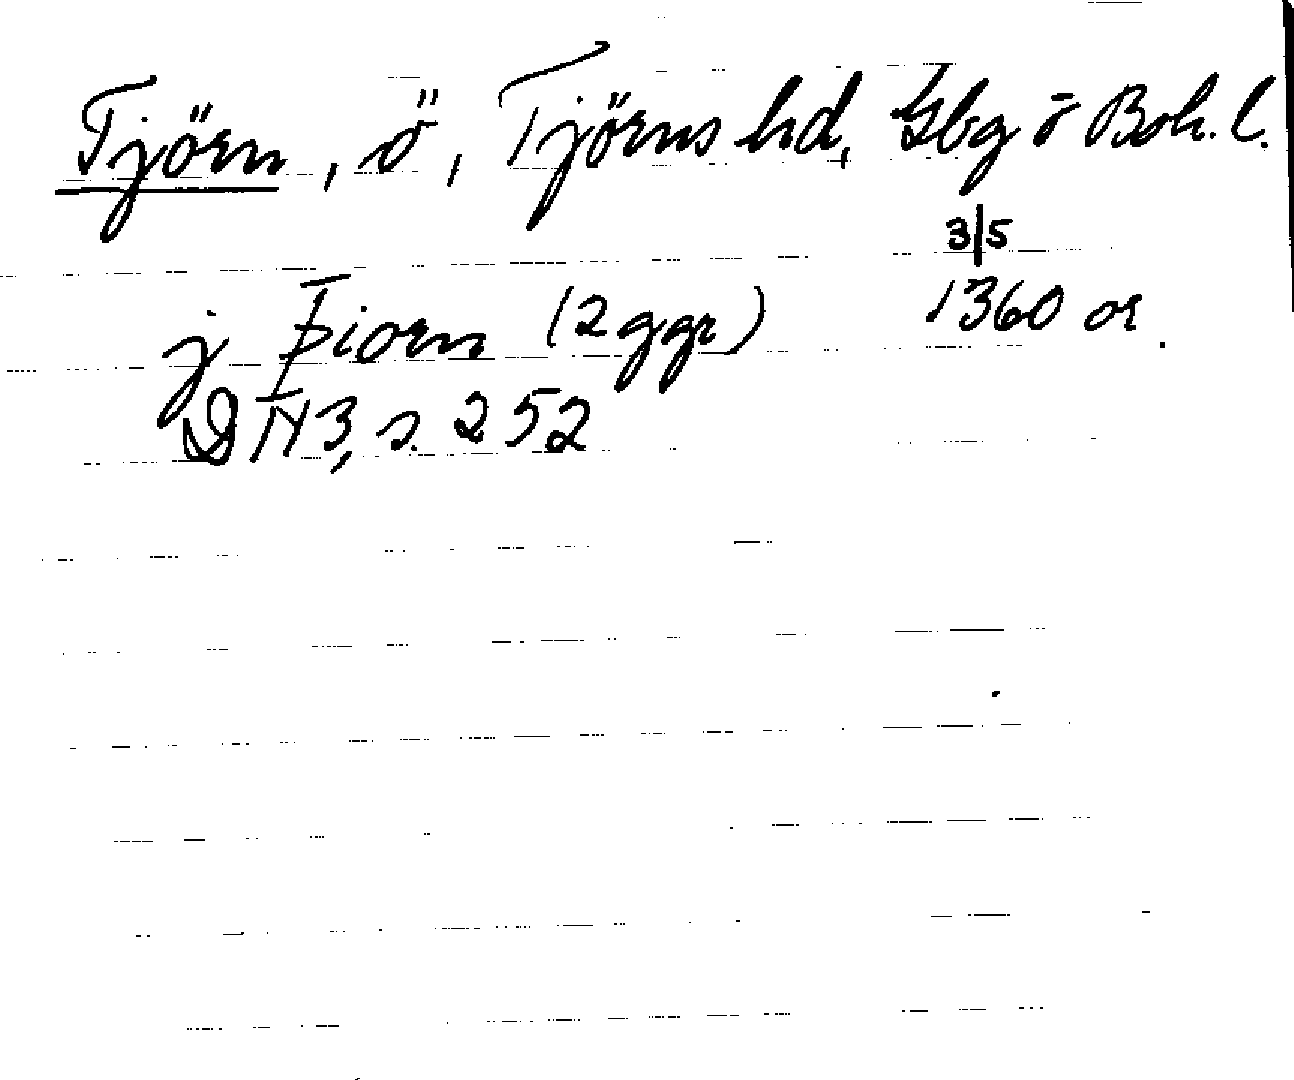 Tjörn, ö, Tjörns hd, Gbg o Boh. l.
3/5
j Þiorn (2 ggr) 1360 or.
DN3, s. 252